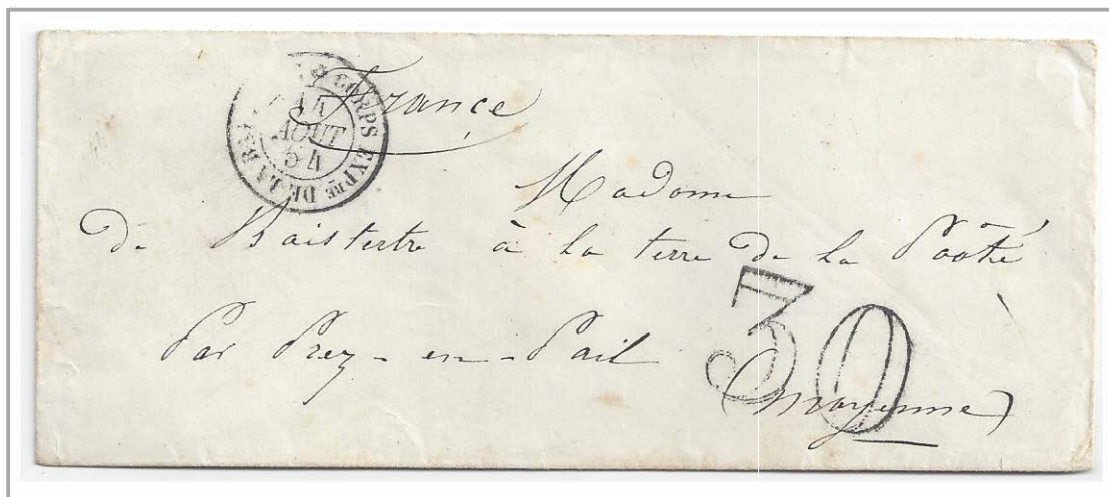 CORPS EXPRE DE LA B
14
AOUT
54
France
Madame
De à la terre de la Pooté
Par Prez-en-Pail
(Mayenne)
30